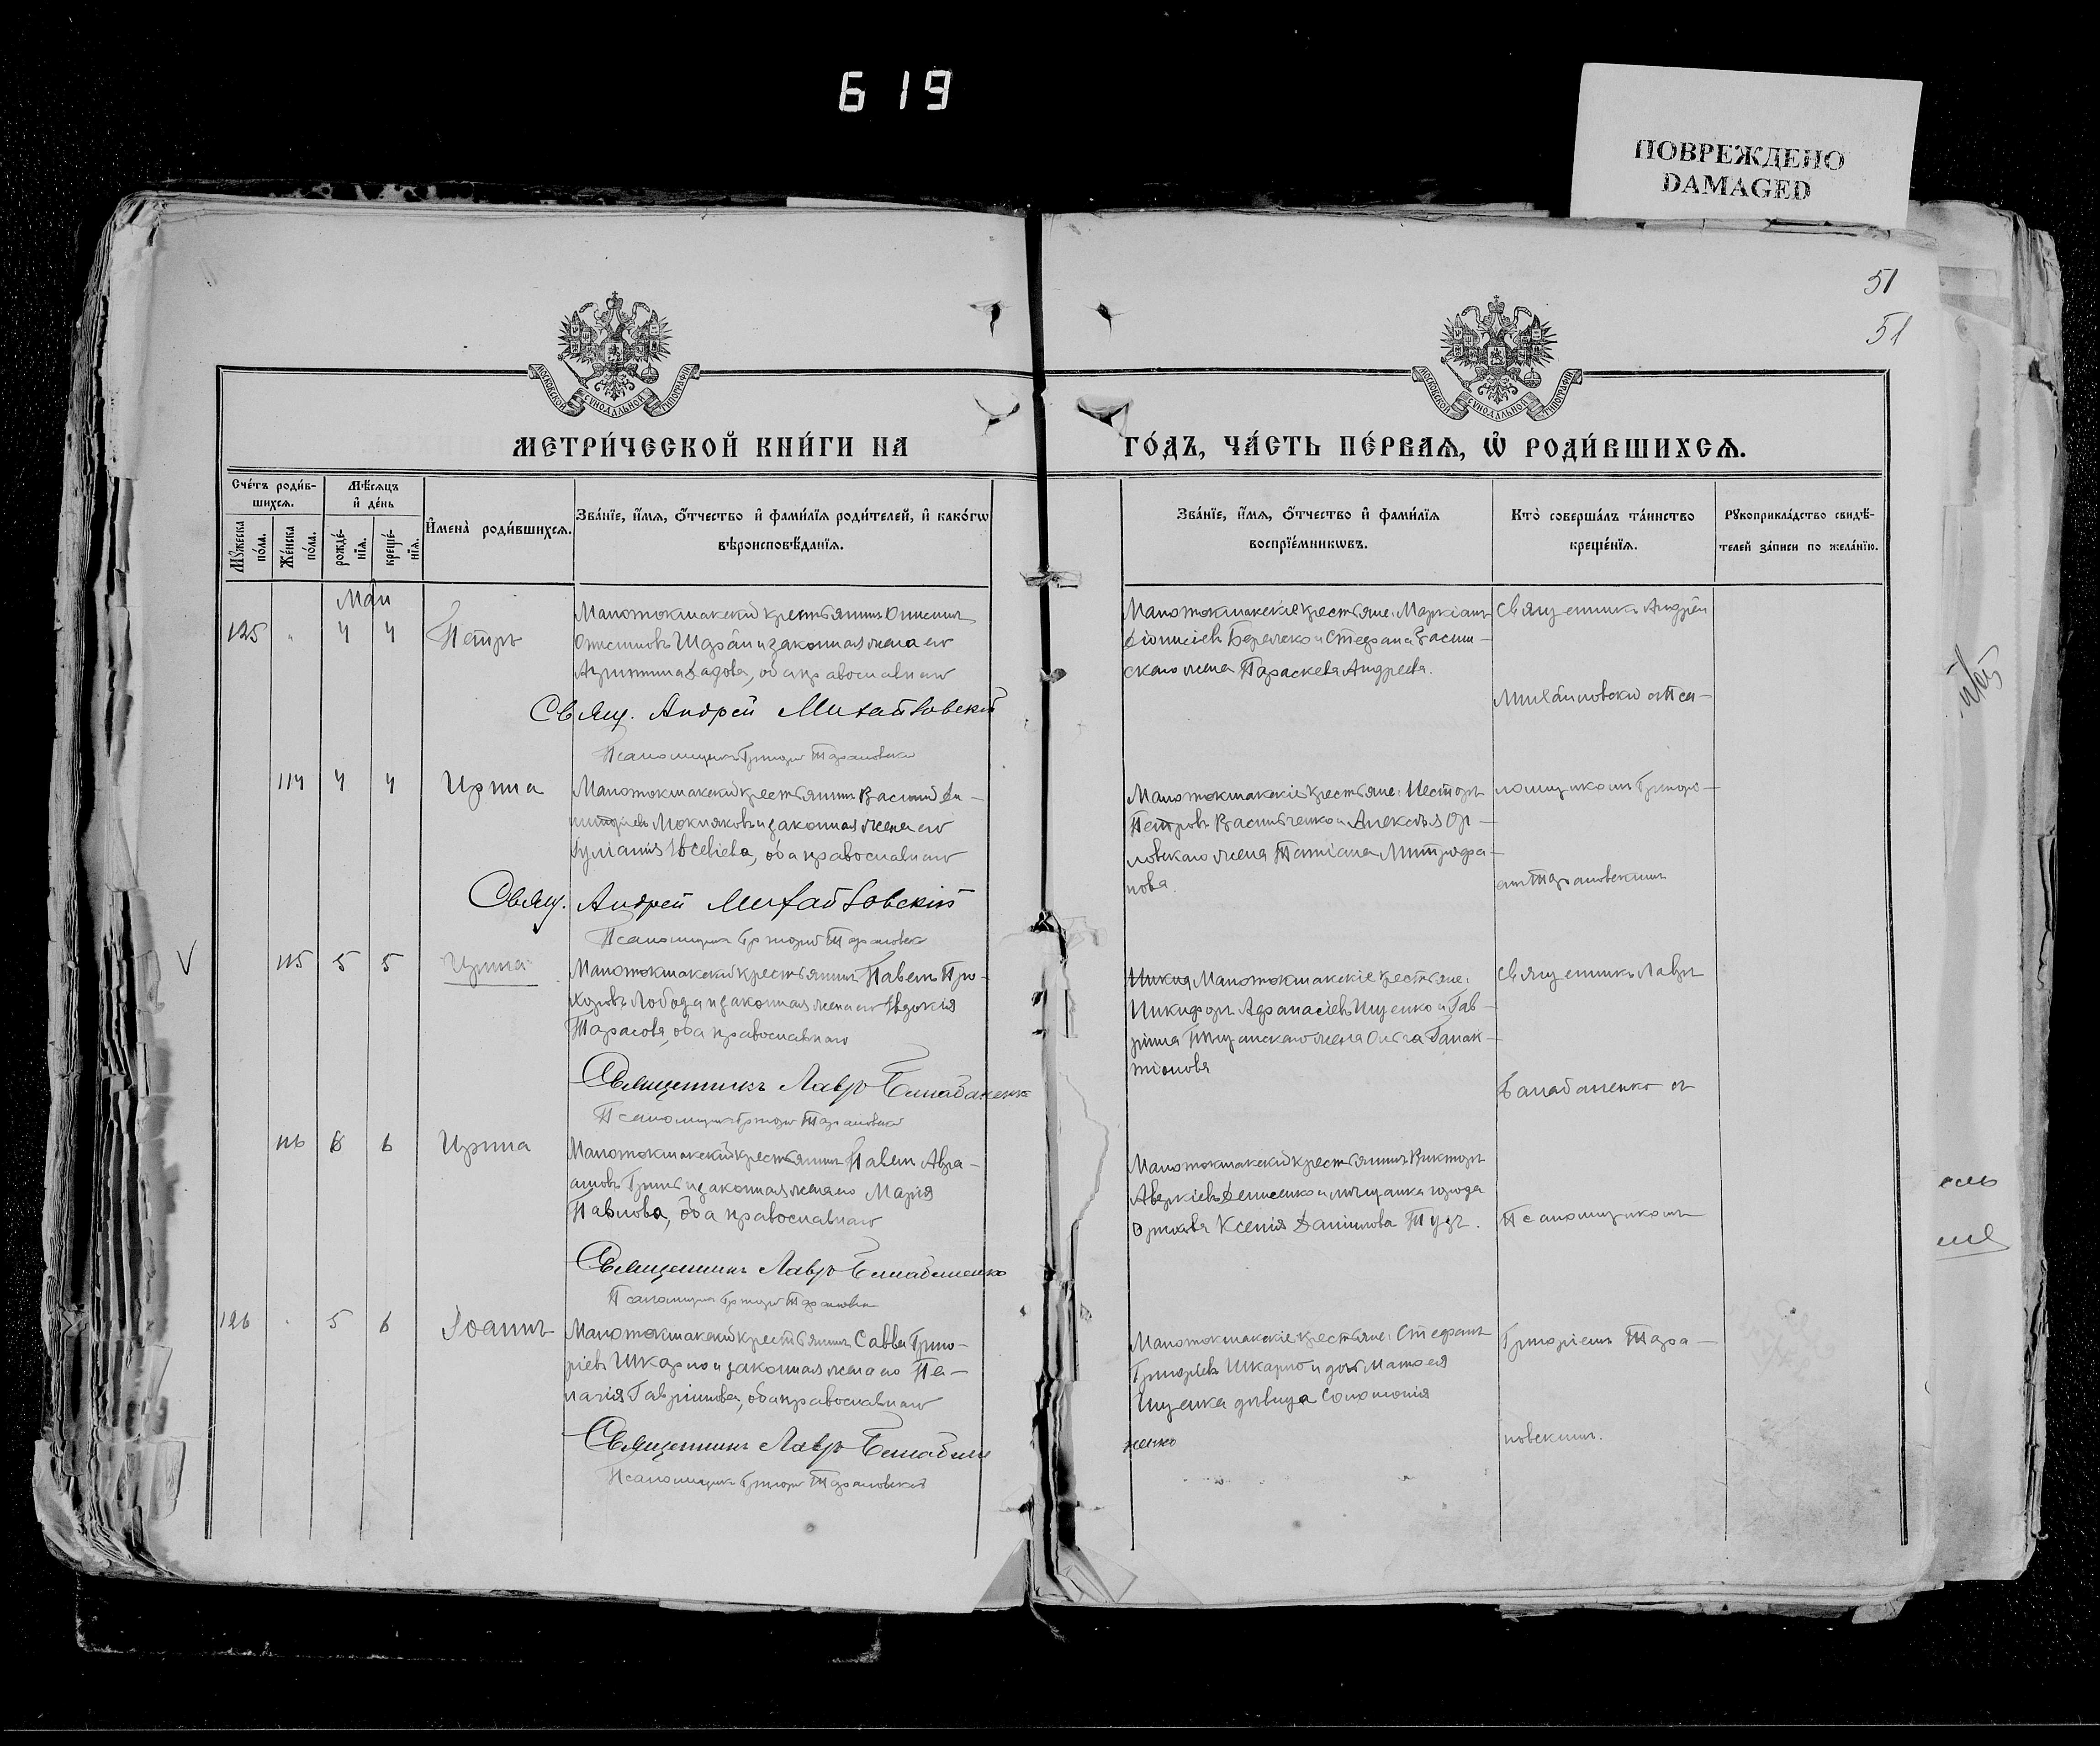 619
ПОВРЕЖДЕНО
DAMAGED
51
51
МОСКОВСКОЙ СѴНОДАЛЬНОЙ ТИПОГРАФІИ
МОСКОВСКОЙ СѴНОДАЛЬНОЙ ТИПОГРАФІИ
МЕТРИ́ЧЕСКОЙ КНИ́ГИ НА
ГО́ДЪ, ЧА́СТЬ ПЕ́РВАѦ, Ѡ҆ РОДИ́ВШИХСѦ.
Сче́тъ роди́в-
шихсѧ.
Мꙋ́жеска
по́ла.
Же́нска
по́ла.
Мѣ́сѧцъ
и҆ де́нь
рожде́-
нїѧ.
креще́-
нїѧ.
И҆мена̀ роди́вшихсѧ.
Зва́нїе, и҆́мѧ, ѻ҆́тчество и҆ фами́лїѧ роди́телей, и҆ како́гѡ
вѣроисповѣ́данїѧ.
Зва́нїе, и҆́мѧ, ѻ҆́тчество и҆ фами́лїѧ
воспрїе́мникѡвъ.
Кто̀ соверша́лъ та́инство
креще́нїѧ.
Рꙋкоприкла́дство свидѣ́-
телей за́писи по жела́нїю.
Май
125 " 4 4 Петръ
Малотокмакскій крестьянинъ Онисимъ
Онисимовъ Шрам и законная жена его
Агрипина Садова, оба православнаго
Свящ. Андрей Михайловскій
Псаломщикъ Григорій Тарановскій
Малотокмакскіе крестьяне: Маркіанъ
Діонисіевъ Берелеко и Стефана Засим-
скаго жена Параскева Андреева.
Священникъ Андрей
Михайловскій съ Пса-
114 4 4 Ирина
Малотокмакскій крестьянинъ Василий Ди-
митріевъ Мокляковъ и законная жена его
Іуліанія Евсевіева, оба православнаго
Свящ. Андрей Михайловскій
Псаломщикъ Григорий Тарановскій
Малотокмакскіе крестьяне: Несторъ
Петровъ Васильченко и Алексѣя Ор-
ловскаго жена Татіана Митрофа-
нова.
ломщикомъ Григорі-
емъ Тарановскимъ
V 115 5 5 Ирина
Малотокмакский крестьянинъ Павелъ Про-
хоровъ Лобода и законная жена его Евдокія
Тарасова, оба православнаго
Священникъ Лавръ Балабаненко
Псаломщикъ Григорій Тарановскій
Малотокмакскіе крестьяне:
Никифоръ Афанасіевъ Ищенко и Гав-
ріила жена Ольга Галак-
тіонова
Священникъ Лавръ
Балабаненко съ
116 6 6 Ирина
Малотокмакский крестьянинъ Павелъ Авра-
амовъ Гринь и законная жена его Марія
Павлова, оба православнаго
Священникъ Лавръ Балабаненко
Псаломщикъ Григорій Тарановскій
Малотокмакский крестьянинъ Викторъ
Аверкіевъ Денисенко и мѣщанка города
Орѣхова Ксенія Даніилова Тузъ.
Псаломщикомъ
126 " 5 6 Іоаннъ
Малотокмакский крестьянинъ Савва Григо-
ріевъ Шкарпо и законная жена его Пе-
лагія Гавріилова, оба православнаго
Священникъ Лавръ Балабане
Псаломщикъ Григорій Тарановскій
ненко
Малотокмакскіе крестьяне: Стефанъ
Григоріевъ Шкарпо и дочь Матѳея
Ищенка дѣвица Соломонія
Григоріемъ Тара-
новскимъ.